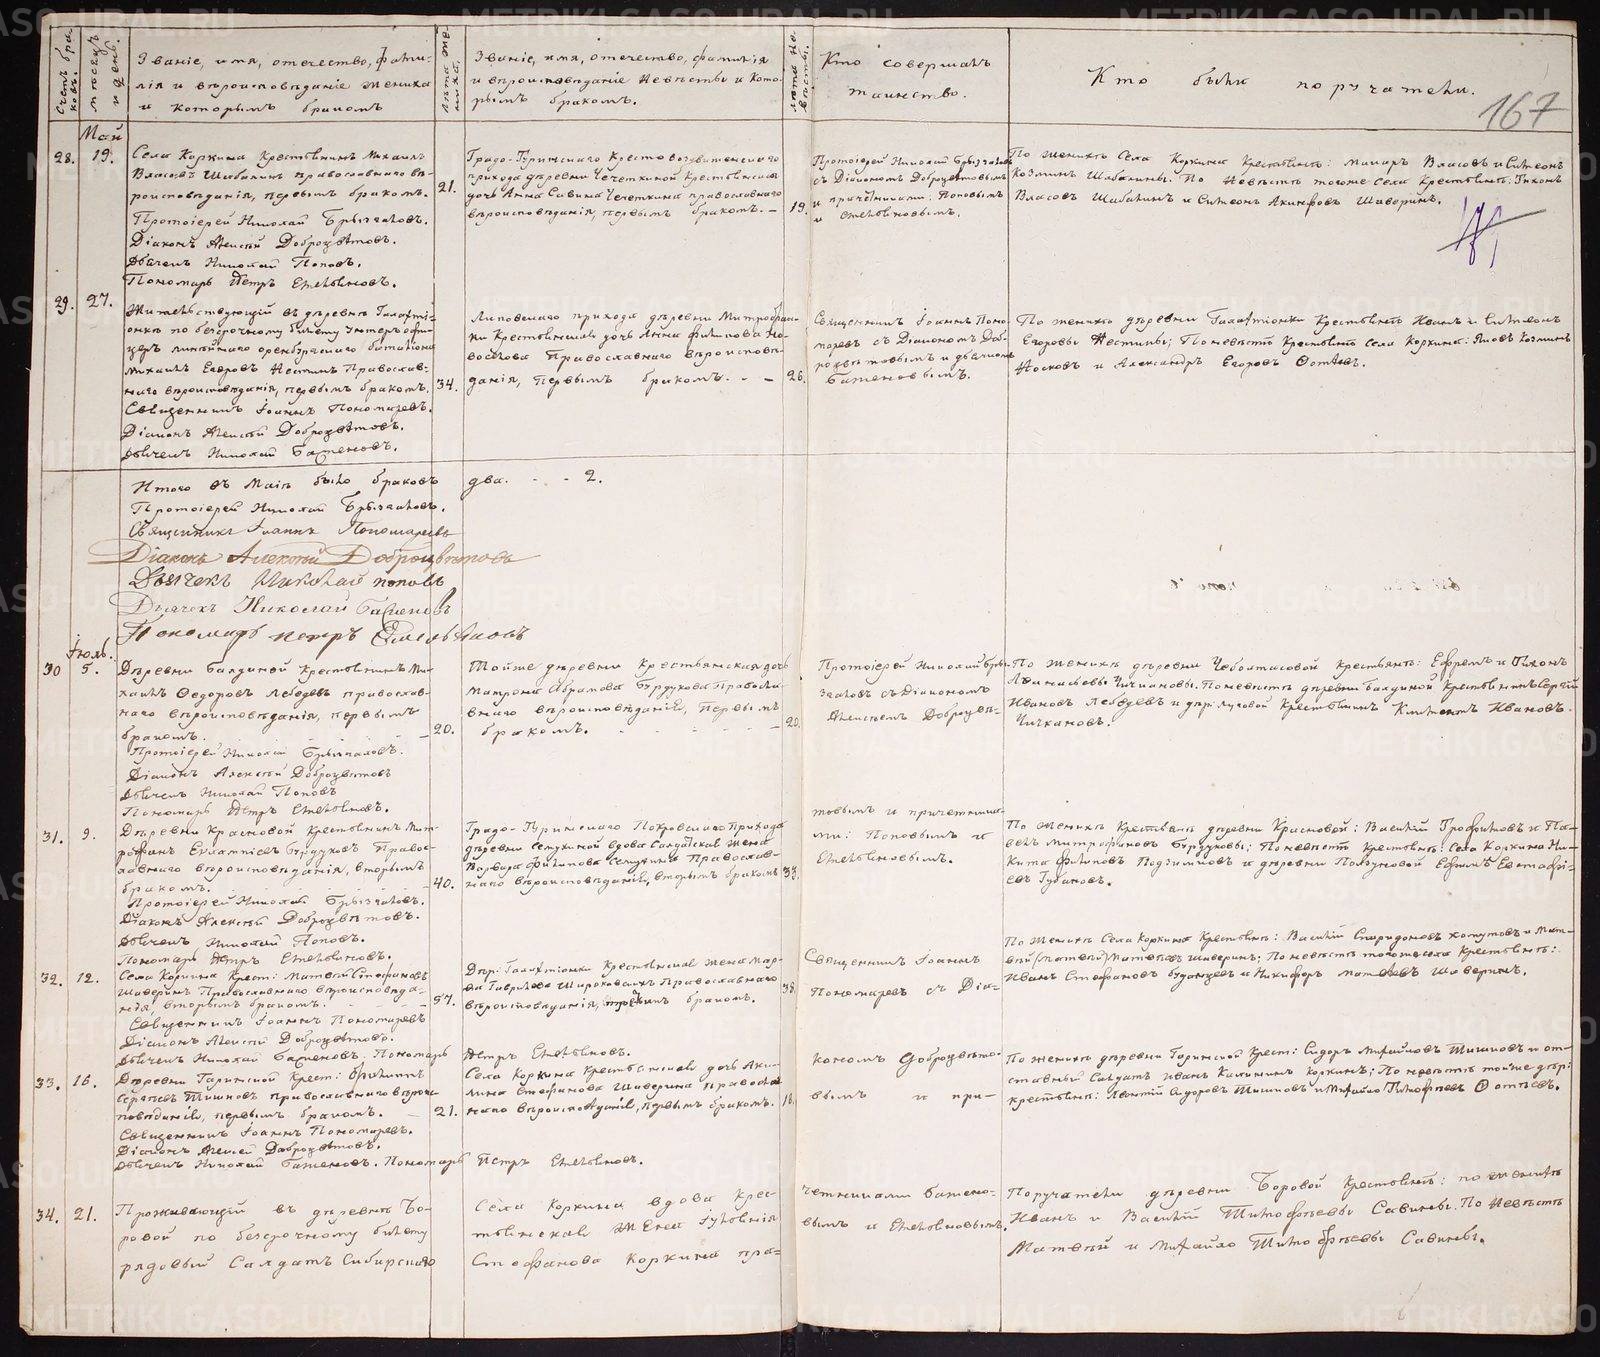 Счетъ бра-
ковъ.
Мѣсяцъ
и день.
Званіе, имя, отечество, фами-
лія и вѣроисповѣданіе жениха
и которымъ бракомъ
Лѣта же-
ниха.
Званіе, имя, отечество, фамилія
и вѣроисповѣданіе невѣсты и кото-
рымъ бракомъ.
Лѣта не-
вѣсты.
Кто совершалъ
таинство.
Кто были поручатели.
167
Май
28.
19.
Села Коркина крестьянинъ Михаилъ
Власовъ Шабалинъ православнаго вѣ-
роисповѣданія, первымъ бракомъ.
Протоіерей Николай Брызгаловъ.
Діаконъ Алексѣй Доброцвѣтовъ.
Дьячекъ Николай Поповъ.
Пономарь Петръ Емельяновъ.
21.
Градо-Туринскаго Крестовоздвиженскаго
прихода деревни Чечеткиной крестьянская
дочь Анна Савина Чечеткина православнаго
вѣроисповѣданія, первымъ бракомъ.
19.
Протоіерей Николай Брызгаловъ
съ Діакономъ Доброцвѣтовымъ
и причетниками: Поповымъ
и Емельяновымъ.
По женихѣ Села Коркина крестьянѣ: Макаръ Власовъ и Симеонъ
Козминъ Шабалины. По невѣстѣ тогоже Села крестьянѣ: Тихонъ
Власовъ Шабалинъ и Симеонъ Акинфовъ Шаверинъ.
29.
27.
Жительствующій въ деревнѣ Галактіо-
новкѣ по безсрочному билету Унтеръ офи-
церъ линѣйнаго оренбургскаго баталіона
Михаилъ Егоровъ Нестинъ Православ-
наго вѣроисповѣданія, первымъ бракомъ.
Священникъ Іоаннъ Пономаревъ.
Діаконъ Алексѣй Доброцвѣтовъ.
Дьячекъ Николай Баженовъ.
34.
Липовскаго прихода деревни Митрофан-
ки крестьянская дочь Анна Филипова Но-
воселова Православнаго вѣроисповѣ-
данія, первымъ бракомъ.
26.
Священникъ Іоаннъ Поно-
маревъ съ Діакономъ Доб-
роцвѣтовымъ и дьячкомъ
Баженовымъ.
По женихѣ деревни Галактіонки крестьянѣ Иванъ и Симеонъ
Егоровы Нестины; По невѣстѣ крестьянѣ села Коркина: Яковъ Козминъ
Носковъ и Александръ Егоровъ Фотѣевъ.
Итого въ Маіѣ было браковъ два. 2.
Протоіерей Николай Брызгаловъ.
Священникъ Іоаннъ Пономаревъ
Діаконъ Алексѣй Доброцвѣтовъ
Дьячекъ Николай поповъ
Дьячекъ Николай Баженовъ
Пономарь петръ Емельяновъ
Іюль.
30
5.
Деревни Балдиной крестьянинъ Ми-
хаилъ Ѳедоровъ Лебедевъ православ-
наго вѣроисповѣданія, первымъ
бракомъ.
Протоіерей Николай Брызгаловъ.
Діаконъ Алексѣй Доброцвѣтовъ
Дьячекъ Николай Поповъ
Пономарь Петръ Емельяновъ.
20.
Тойже деревни крестьянская дочь
Матрона Абрамова Бурдукова Правосла-
внаго вѣроисповѣданія, первымъ
бракомъ.
20.
Протоіерей Николай Бры-
згаловъ съ Діакономъ
Алексѣемъ Доброцвѣ-
товымъ и причетника-
ми: Поповымъ и
Емельяновымъ.
По женихѣ деревни Чеболтасовой крестьянѣ: Ефремъ и Тихонъ
Аѳанасьевы Чичкановы. По невѣстѣ деревни Балдиной крестьянинъ Сергѣй
Ивановъ Лебедевъ и дер: Луговой крестьянинъ Климентъ Ивановъ
Чичкановъ.
31.
9.
Деревни Красновой крестьянинъ Мит-
рофанъ Евлампіевъ Бурдуковъ Правос-
лавнаго вѣроисповѣданія, вторымъ
бракомъ.
Протоіерей Николай Брызгаловъ.
Діаконъ Алексѣй Доброцвѣтовъ.
Дьячекъ Николай Поповъ.
Пономарь Петръ Емельяновъ.
40.
Градо-Туринскаго Покровскаго прихода
деревни Семухиной вдова Салдатская жена
Варвара Филипова Семухина Православ-
наго вѣроисповѣданія, вторымъ бракомъ
33.
По женихѣ крестьянѣ деревни Красновой: Василій Трофимовъ и Па-
велъ Митрофановъ Бурдуковы; По невѣстѣ крестьянѣ: Села Коркина Ни-
кита Филиповъ Подзимковъ и деревни Ползуновой Ефимъ Евстафі-
евъ Губановъ.
32.
12.
Села Коркина крест: Матвѣй Стефановъ
Шаверинъ Православнаго вѣроисповѣда-
нія, вторымъ бракомъ.
Священникъ Іоаннъ Пономаревъ
Діаконъ Алексѣй Доброцвѣтовъ.
Дьячекъ Николай Баженовъ. Пономарь Петръ Емельяновъ.
57.
Дер: Галактіонки крестьянская жена Мар-
фа Гаврилова Широковскихъ Православнаго
вѣроисповѣданія, третьимъ бракомъ.
38.
Священникъ Іоаннъ
Пономаревъ съ Діа-
кономъ Доброцвѣто-
вымъ и при-
четниками Бажено-
вымъ и Емельяновымъ.
По женихѣ Села Коркина крестьянѣ: Василій Спиридоновъ хомутовъ и Мат-
вѣй Матвѣевъ Шаверинъ; По невѣстѣ тогоже села крестьянѣ:
Иванъ Стефановъ Будницевъ и Никифоръ Матвѣевъ Шаверинъ.
33.
16.
Деревни Гаринской крест: Филипъ
Сергѣевъ Тишковъ православнаго вѣроис-
повѣданія, первымъ бракомъ.
Священникъ Іоаннъ Пономаревъ.
Діаконъ Алексей Доброцвѣтовъ.
Дьячекъ Николай Баженовъ. Пономарь Петръ Емельяновъ.
21.
Села Коркина крестьянская дочь Аку-
лина Стефанова Шаверина правосла-
внаго вѣроисповѣданія, первымъ бракомъ.
18.
По женихѣ деревни Гаринской крест: Сидоръ Михайловъ Тишковъ и от-
ставный Салдатъ Иванъ Калининъ Коркинъ; По невѣстѣ тойже дер:
крестьянѣ: Леонтій Сидоровъ Тишковъ и Михайло Тимофѣевъ Фотѣевъ.
34.
21.
Проживающій въ деревнѣ Бо-
ровой по безсрочному билету
рядовый Салдатъ Сибирскаго
Села Коркина вдова крес-
тьянская жена Гуловнія
Стефанова Коркина пра-
Поручатели деревни Боровой крестьянѣ: по женихѣ
Иванъ и Василій Тимофѣевы Савины. По невѣстѣ
Матвѣй и Михайло Тимофѣевы Савины.
METRIKI.GASO-URAL.RU